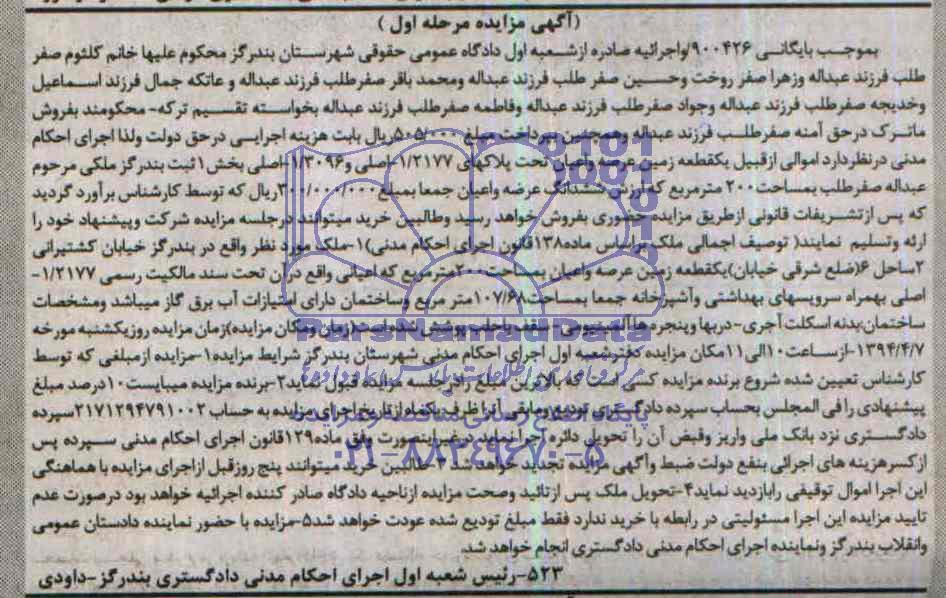 (آگهی مزایده مرحله اول)
بموجب بایگانی ۹۰۰۴۲۶/واجرائیه صادره ازشعبه اول دادگاه عمومی حقوقی شهرستان بندرگز محکوم علیها خانم کلثوم صفر
طلب فرزند عبداله وزهرا صفر روخت وحسین صفر طلب فرزند عبداله ومحمد باقر صفرطلب فرزند عبداله و عاتکه جمال فرزند اسماعیل
وخدیجه صفرطلب فرزند عبداله وجواد صفرطلب فرزند عبداله وفاطمه صفرطلب فرزند عبداله بخواسته تقسیم ترکه- محکومند بفروش
ماترک درحق آمنه صفرطلب فرزند عبداله وهمچنین پرداخت مبلغ ۵۰۵/۰۰۰ریال بابت هزینه اجرایی درحق دولت ولذا اجرای احکام
مدنی درنظردارد اموالی ازقبیل یکقطعه زمین عرصه واعیان تحت پلاکهای ۱/۲۱۷۷-اصلی و۱/۳۰۹۶-اصلی بخش۱ثبت بندرگز ملکی مرحوم
عبداله صفرطلب بمساحت۲۰۰ مترمربع که ارزش ششدانگ عرضه واعیان جمعا بمبلغ۳۰۰/۰۰۰/۰۰۰ریال که توسط کارشناس برآورد گردید
که پس ازتشریفات قانونی ازطریق مزایده حضوری بفروش خواهد رسید وطالبین خرید میتوانند درجلسه مزایده شرکت وپیشنهاد خود را
ارئه وتسلیم نمایند( توصیف اجمالی ملک براساس ماده۱۳۸قانون اجرای احکام مدنی)۱-ملک مورد نظر واقع در بندرگز خیابان کشتیرانی
۲ساحل ۶(ضلع شرقی خیابان)یکقطعه زمین عرصه واعیان بمساحت۲۰۰مترمربع که اعیانی واقع درآن تحت سند مالکیت رسمی ۱/۲۱۷۷-
اصلی بهمراه سرویسهای بهداشتی وآشپزخانه جمعا بمساحت۱۰۷/۶۸متر مربع وساختمان دارای امتیازات آب برق گاز میباشد ومشخصات
ساختمان:بدنه اسکلت آجری-دربها وپنجره ها آلمینیومی- سقف باحلب پوشش شده است(زمان ومکان مزایده)زمان مزایده روزیکشنبه مورخه
۱۳۹۴/۴/۷-ازساعت۱۰الی۱۱مکان مزایده دفترشعبه اول اجرای احکام مدنی شهرستان بندرگز شرایط مزایده۱-مزایده ازمبلغی که توسط
کارشناس تعیین شده شروع برنده مزایده کسی است که بالاترین مبلغ را درجلسه مزایده قبول نماید۲-برنده مزایده میبایست۱۰درصد مبلغ
پیشنهادی را فی المجلس بحساب سپرده دادگستری تودیع ومابقی آنرا ظرف یکماه ازتاریخ اجرای مزایده به حساب ۲۱۷۱۲۹۴۷۹۱۰۰۲سپرده
دادگستری نزد بانک ملی واریز وقبض آن را تحویل دائره اجرا نماید درغیراینصورت وفق ماده۱۲۹قانون اجرای احکام مدنی سپرده پس
ازکسرهزینه های اجرائی بنفع دولت ضبط وآگهی مزایده تجدید خواهد شد ۳-طالبین خرید میتوانند پنج روزقبل ازاجرای مزایده با هماهنگی
این اجرا اموال توقیفی رابازدید نماید۴-تحویل ملک پس ازتائید وصحت مزایده ازناحیه دادگاه صادر کننده اجرائیه خواهد بود درصورت عدم
تایید مزایده این اجرا مسئولیتی در رابطه با خرید ندارد فقط مبلغ تودیع شده عودت خواهد شد۵-مزایده با حضور نماینده دادستان عمومی
وانقلاب بندرگز ونماینده اجرای احکام مدنی دادگستری انجام خواهد شد.
۵۲۳-رئیس شعبه اول اجرای احکام مدنی دادگستری بندرگز-داودی
ParsNamadData
۰۲۱-۸۸۳۴۹۶۷۰-۵